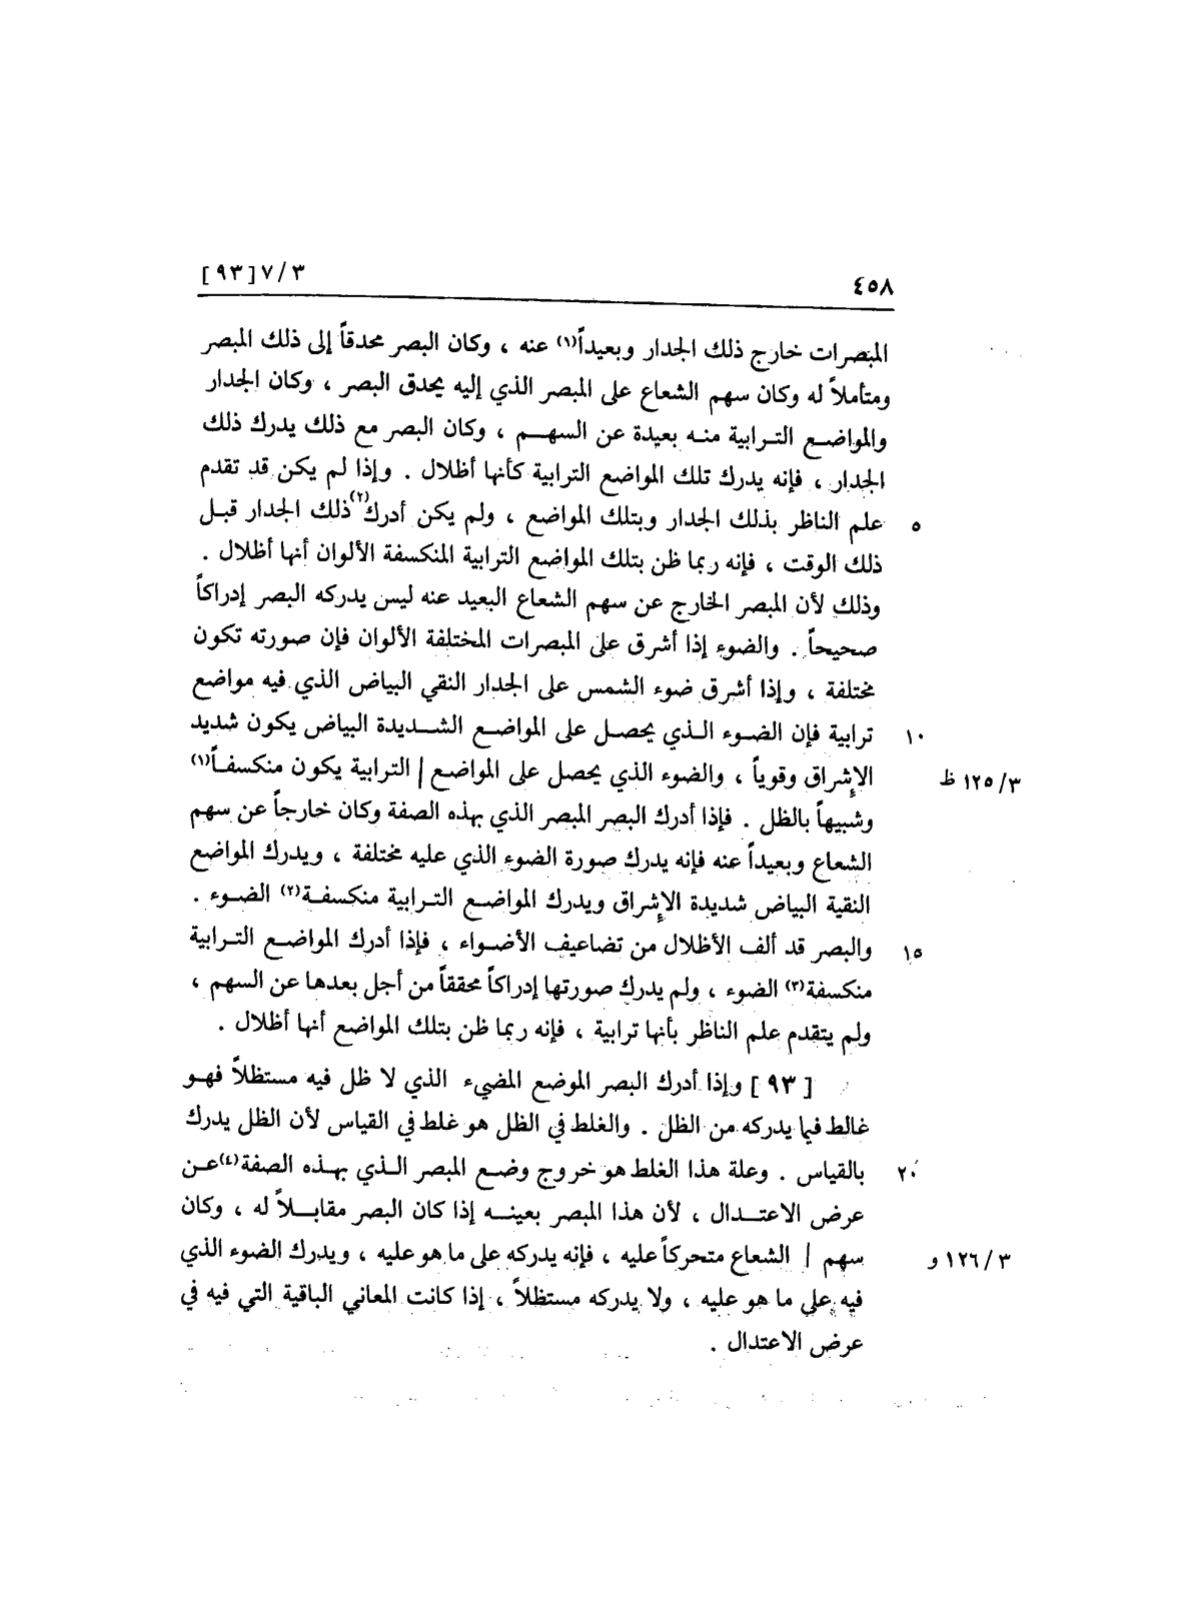 ٤٥٨
٣/٧[٩٣]
المبصرات خارج ذلك الجدار وبعيداً(١) عنه ، وكان البصر محدقاً إلى ذلك المبصر
ومتأملاً له وكان سهم الشعاع على المبصر الذي إليه يحدق البصر ، وكان الجدار
والمواضع الترابية منه بعيدة عن السهم ، وكان البصر مع ذلك يدرك ذلك
الجدار ، فإنه يدرك تلك المواضع الترابية كأنها أظلال . وإذا لم يكن قد تقدم
علم الناظر بذلك الجدار وبتلك المواضع ، ولم يكن أدرك(٢) ذلك الجدار قبل ٥
ذلك الوقت ، فإنه ربما ظن بتلك المواضع الترابية المنكسفة الألوان أنها أظلال .
وذلك لأن المبصر الخارج عن سهم الشعاع البعيد عنه ليس يدركه البصر إدراكاً
صحيحاً . والضوء إذا أشرق على المبصرات المختلفة الألوان فإن صورته تكون
مختلفة ، وإذا أشرق ضوء الشمس على الجدار النقي البياض الذي فيه مواضع
ترابية فإن الضوء الذي يحصل على المواضع الشديدة البياض يكون شديد ١٠
الإشراق وقوياً ، والضوء الذي يحصل على المواضع | الترابية يكون منكسفاً(١) ٣/ ١٢٥ ظ
وشبيهاً بالظل . فإذا أدرك البصر المبصر الذي بهذه الصفة وكان خارجاً عن سهم
الشعاع وبعيداً عنه فإنه يدرك صورة الضوء الذي عليه مختلفة ، ويدرك المواضع
النقية البياض شديدة الإشراق ويدرك المواضع الترابية منكسفة(٢) الضوء .
والبصر قد ألف الأظلال من تضاعيف الأضواء ، فإذا أدرك المواضع الترابية ١٥
منكسفة(٣) الضوء ، ولم يدرك صورتها إدراكاً محققاً من أجل بعدها عن السهم ،
ولم يتقدم علم الناظر بأنها ترابية ، فإنه ربما ظن بتلك المواضع أنها أظلال .
[ ٩٣ ] وإذا أدرك البصر الموضع المضيء الذي لا ظل فيه مستظلاً فهو
غالط فيما يدركه من الظل . والغلط في الظل هو غلط في القياس لأن الظل يدرك
بالقياس . وعلة هذا الغلط هو خروج وضع المبصر الذي بهذه الصفة(٤) عن ٢٠
عرض الاعتدال ، لأن هذا المبصر بعينه إذا كان البصر مقابلاً له ، وكان
سهم | الشعاع متحركاً عليه ، فإنه يدركه على ما هو عليه ، ويدرك الضوء الذي ٣/ ١٢٦ و
فيه على ما هو عليه ، ولا يدركه مستظلاً ، إذا كانت المعاني الباقية التي فيه في
عرض الاعتدال .